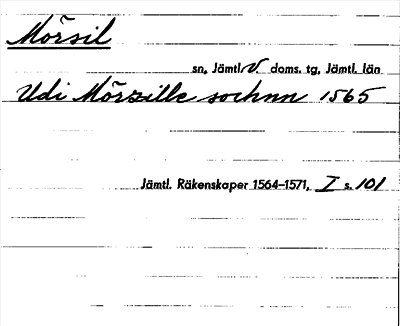 Mörsil
sn, Jämtl. V. doms. tg, Jämtl. län
Udi Mörzille sochnn 1565
Jämtl. Räkenskaper 1564–1571, I s. 101